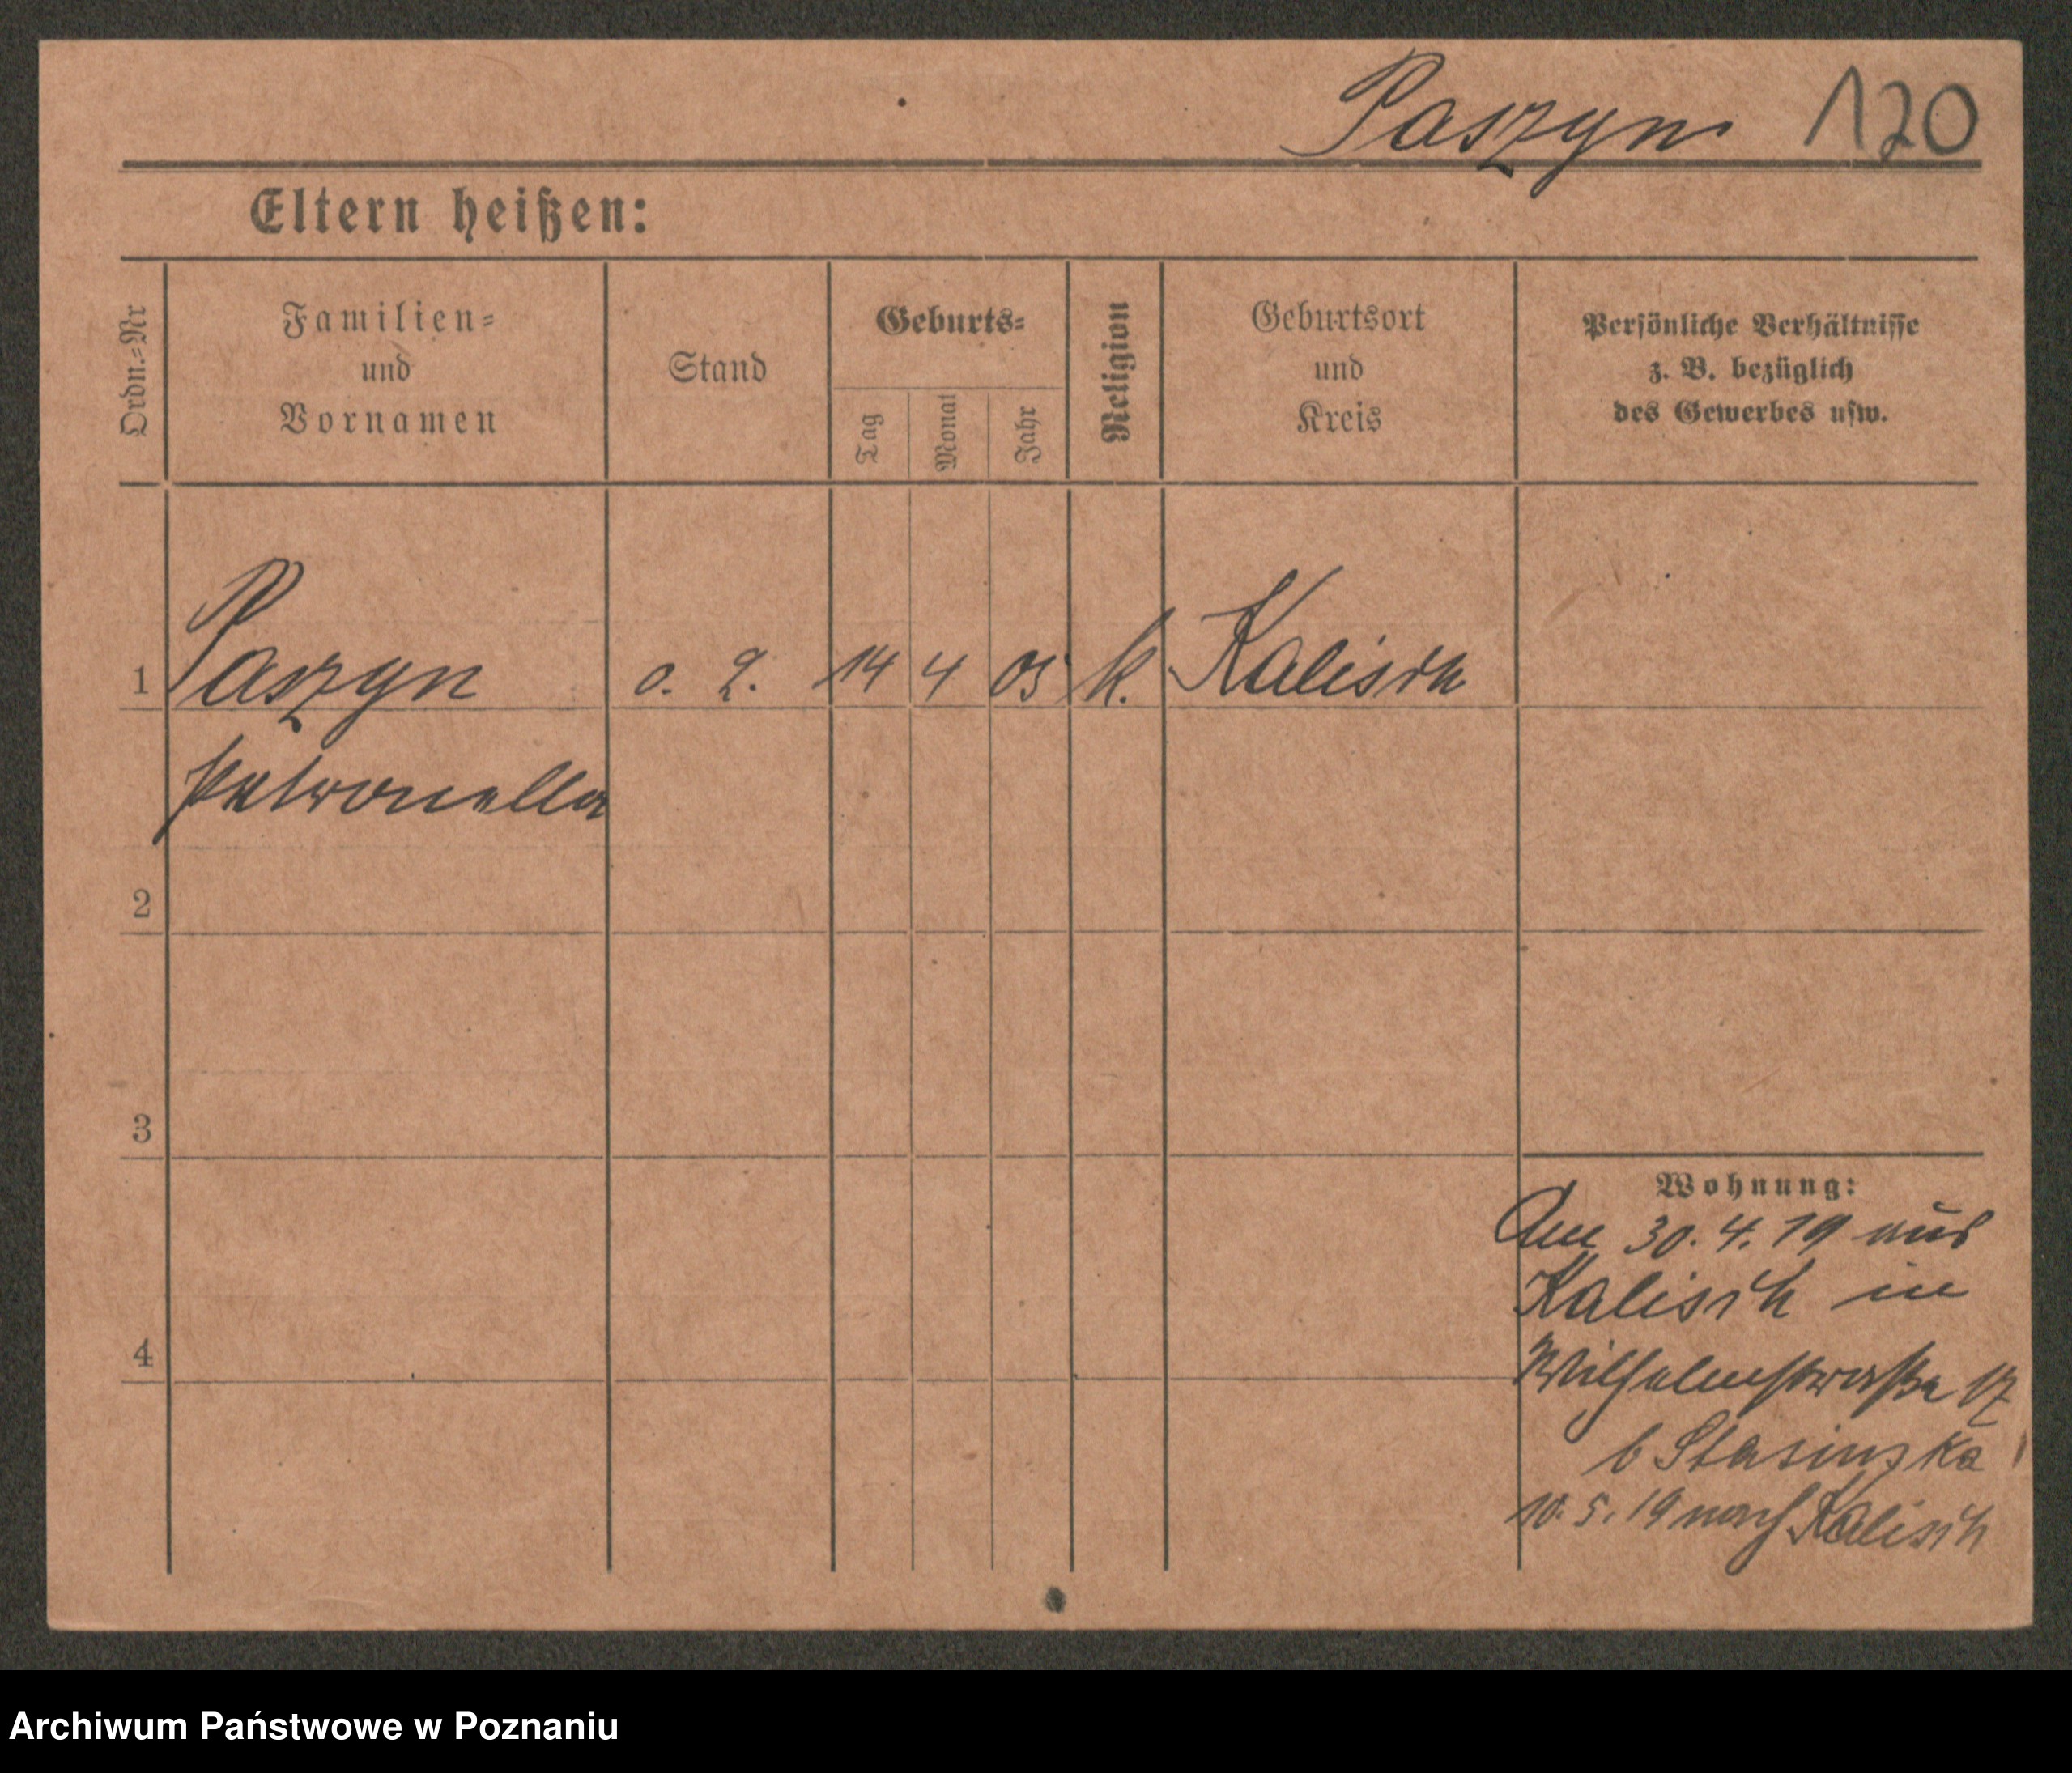 Paszyn 120
Eltern heißen:
Ordn.-Nr
Familien-
und
Vornamen
Stand
Geburts-
Tag
Monat
Jahr
Religion
Geburtsort
und
Kreis
Persönliche Verhältnisse
z. B. bezüglich
des Gewerbes usw.
1 Paszyn o. 14 4 05 k. Kalisch
Petronella
2
3
4
Wohnung:
Am 30. 4. 19 aus
Kalisch in
Wilhelmstraße 17
b Stasinska
10. 5. 19 nach Kalisch
Archiwum Państwowe w Poznaniu